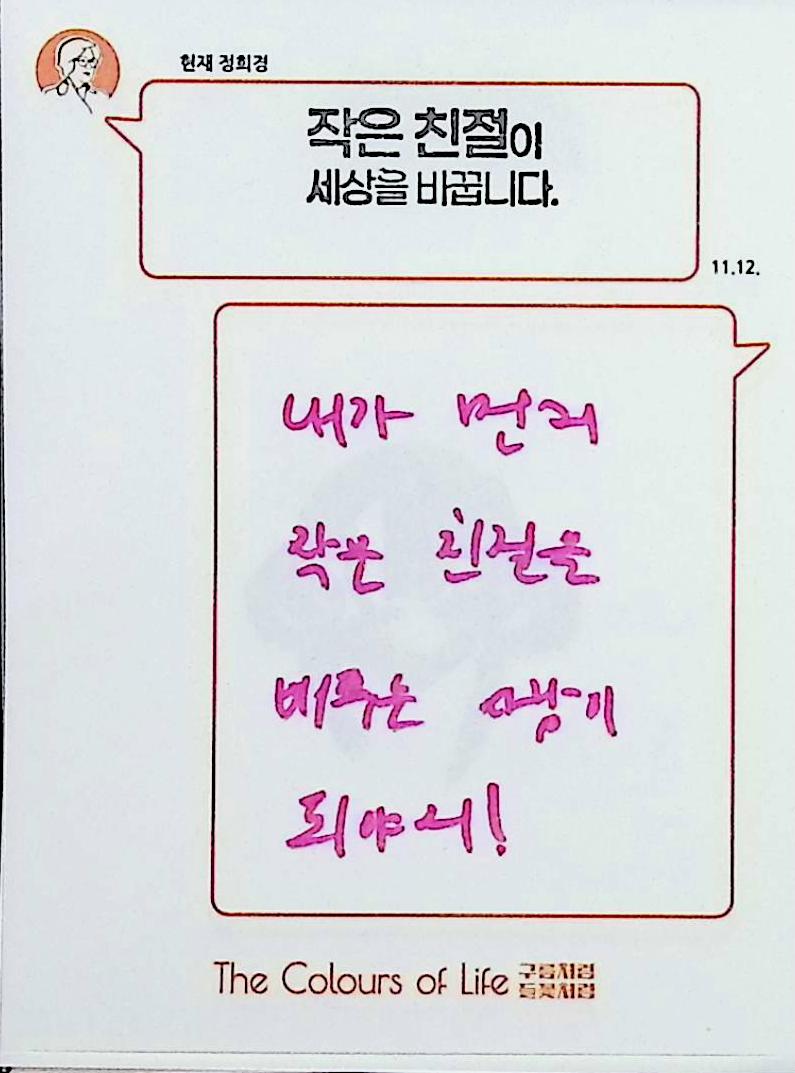 현재 정희경
작은 친절이
세상을 바꿉니다.
11.12.
내가 먼저
작은 친절을
베푸는
되야지!
The Colours of Life 구름처럼
들꽃처럼